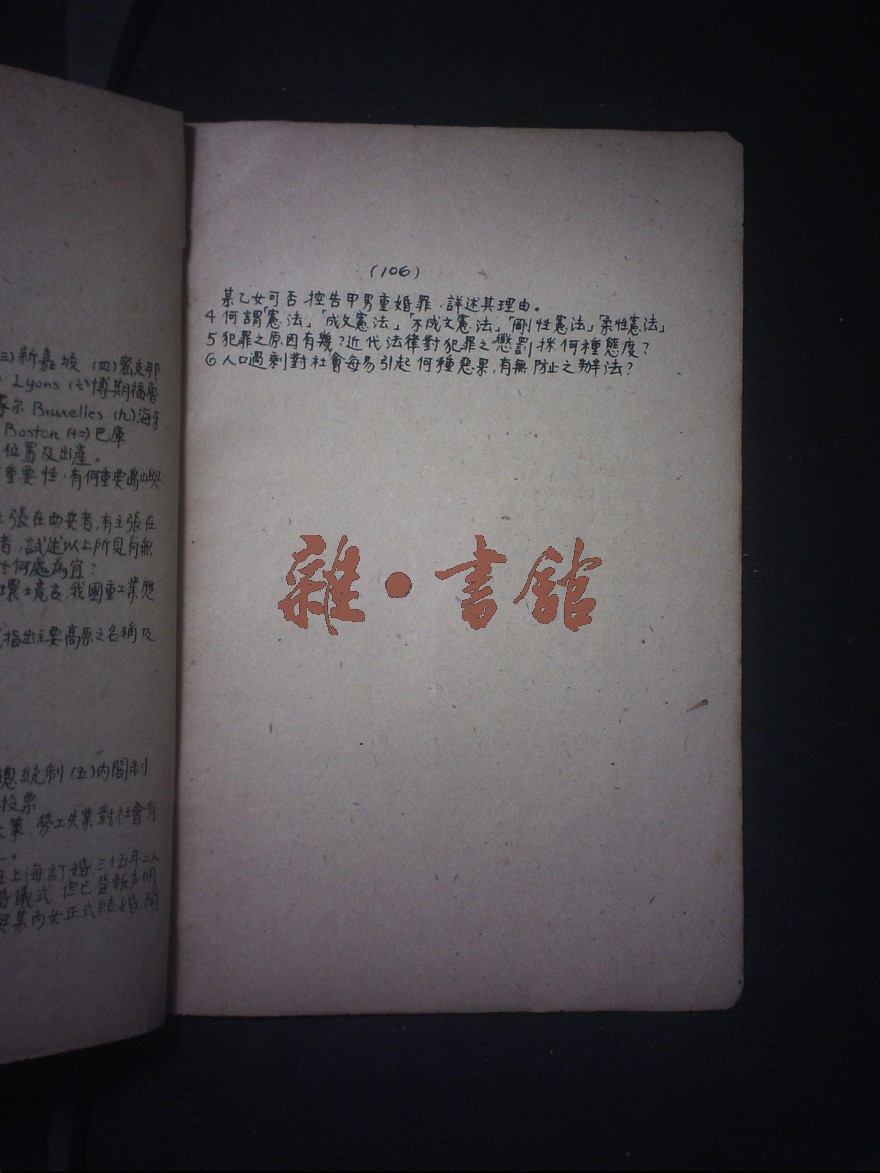 三)新嘉坡 (四)密支那
Lyons (七)博斯福
Bruxelles (九)海牙
Boston (十二)巴庫
位置及出產。
重要性,有何重要島嶼
張在西安者,有主張在
者,試述以上所見有無
於何處為宜?
環境言,我國重工業應
指出主要高原之名稱及
總統制 (五)內閣制
投票
策 勞工失業對社會有
在上海訂婚 三十五年二人
儀式 但已登報聲明
與某丙女正式結婚,問
(106)
某乙女可否控告甲男重婚罪,詳述其理由。
4 何謂「憲法」「成文憲法」「不成文憲法」「剛性憲法」「柔性憲法」
5 犯罪之原因有幾?近代法律對犯罪之懲罰採何種態度?
6 人口過剩對社會每易引起何種惡果,有無防止之辦法?
雜·書館